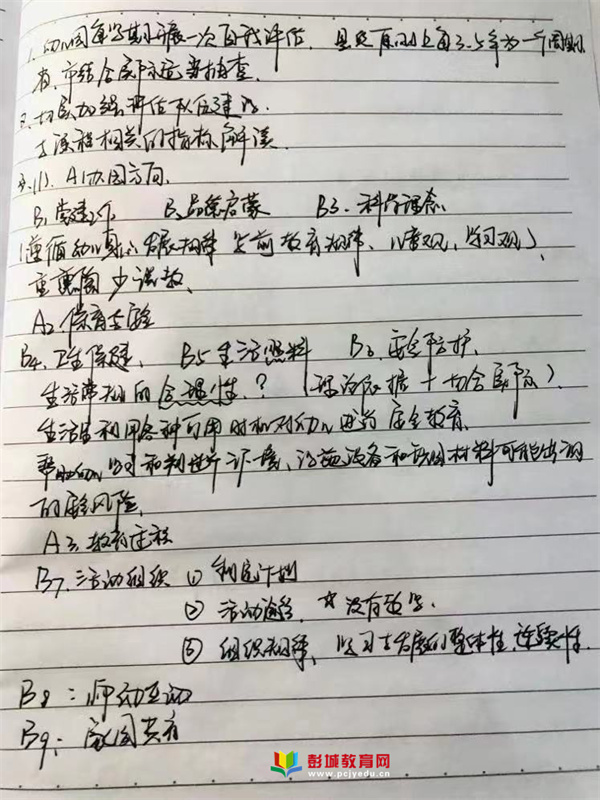 1. 幼儿园每学期开展一次自我评估, 县级原则上每3-5年为一个周期
省、市结合实际适当抽查.
2. 切实加强评估队伍建设.
与课程相关的指标解读.
3. (1). A1办园方向.
B1党建工作 B2品德启蒙 B3. 科学理念
(遵循幼儿身心发展规律 学前教育规律、儿童观, 学习观)
重熏陶 少说教.
A2 保育与安全
B4. 卫生保健. B5 生活照料 B6. 安全防护.
生活常规的合理性.? (理论依据 + 切合实际)
生活里利用各种可用时机对幼儿进行安全教育.
帮助幼儿学习和判断环境、设施设备和玩具材料可能出现
的安全风险.
A3. 教育过程
B7. 活动组织 ① 制定计划
② 活动 ☆没有教学.
③ 组织 学习与发展的整体性, 连续性.
B8: 师幼互动
B9: 家园共育
彭城教育网
www.pcjyedu.cn